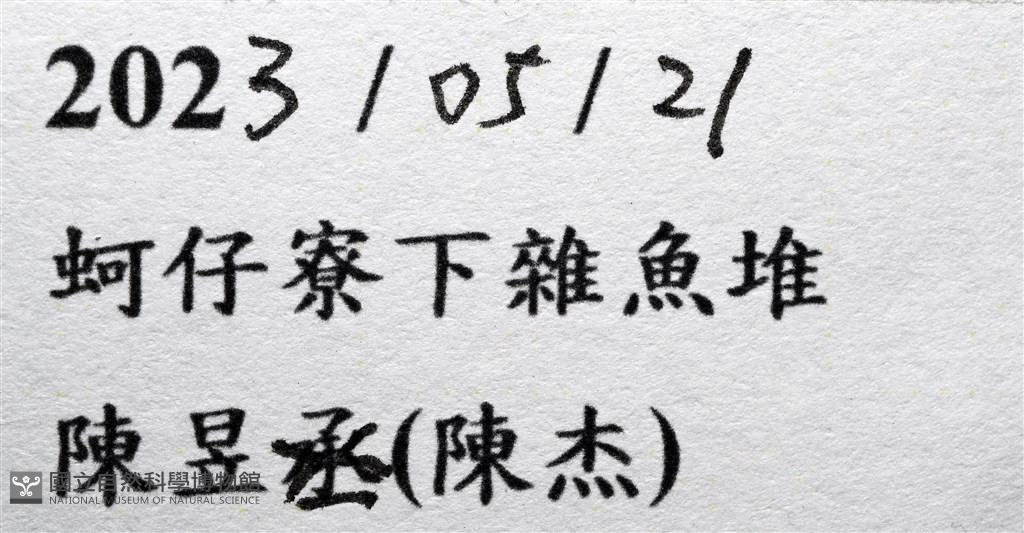 2023 / 05 / 21
蚵仔寮下雜魚堆
陳昱丞(陳杰)
國立自然科學博物館
NATIONAL MUSEUM OF NATURAL SCIENCE